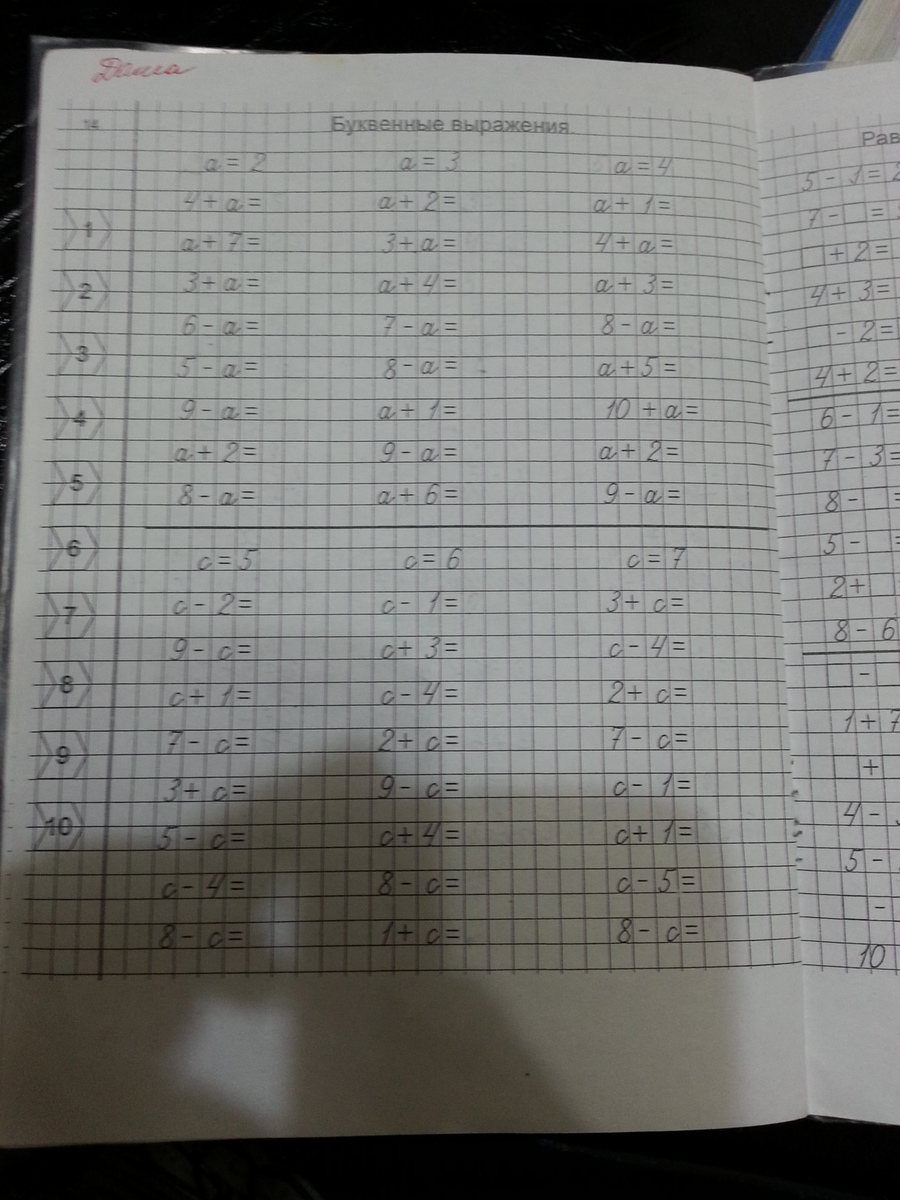 Даша
14 Буквенные выражения. Рав
a = 2 a = 3 a = 4
4 + a = a + 2 = a + 1 =
a + 7 = 3 + a = 4 + a =
3 + a = a + 4 = a + 3 =
6 - a = 7 - a = 8 - a =
5 - a = 8 - a = a + 5 =
9 - a = a + 1 = 10 + a =
a + 2 = 9 - a = a + 2 =
8 - a = a + 6 = 9 - a =
c = 5 c = 6 c = 7
c - 2 = c - 1 = 3 + c =
9 - c = c + 3 = c - 4 =
c + 1 = c - 4 = 2 + c =
7 - c = 2 + c = 7 - c =
3 + c = 9 - c = c - 1 =
5 - c = c + 4 = c + 1 =
c - 4 = 8 - c = c - 5 =
8 - c = 1 + c = 8 - c =
1
2
3
4
5
6
7
8
9
10
5 - 1 = 2
7 - =
+ 2 =
4 + 3 =
- 2 =
4 + 2 =
6 - 1 =
7 - 3 =
8 - =
5 - =
2 +
8 - 6
-
1 + 7
+
4 -
5 -
-
10